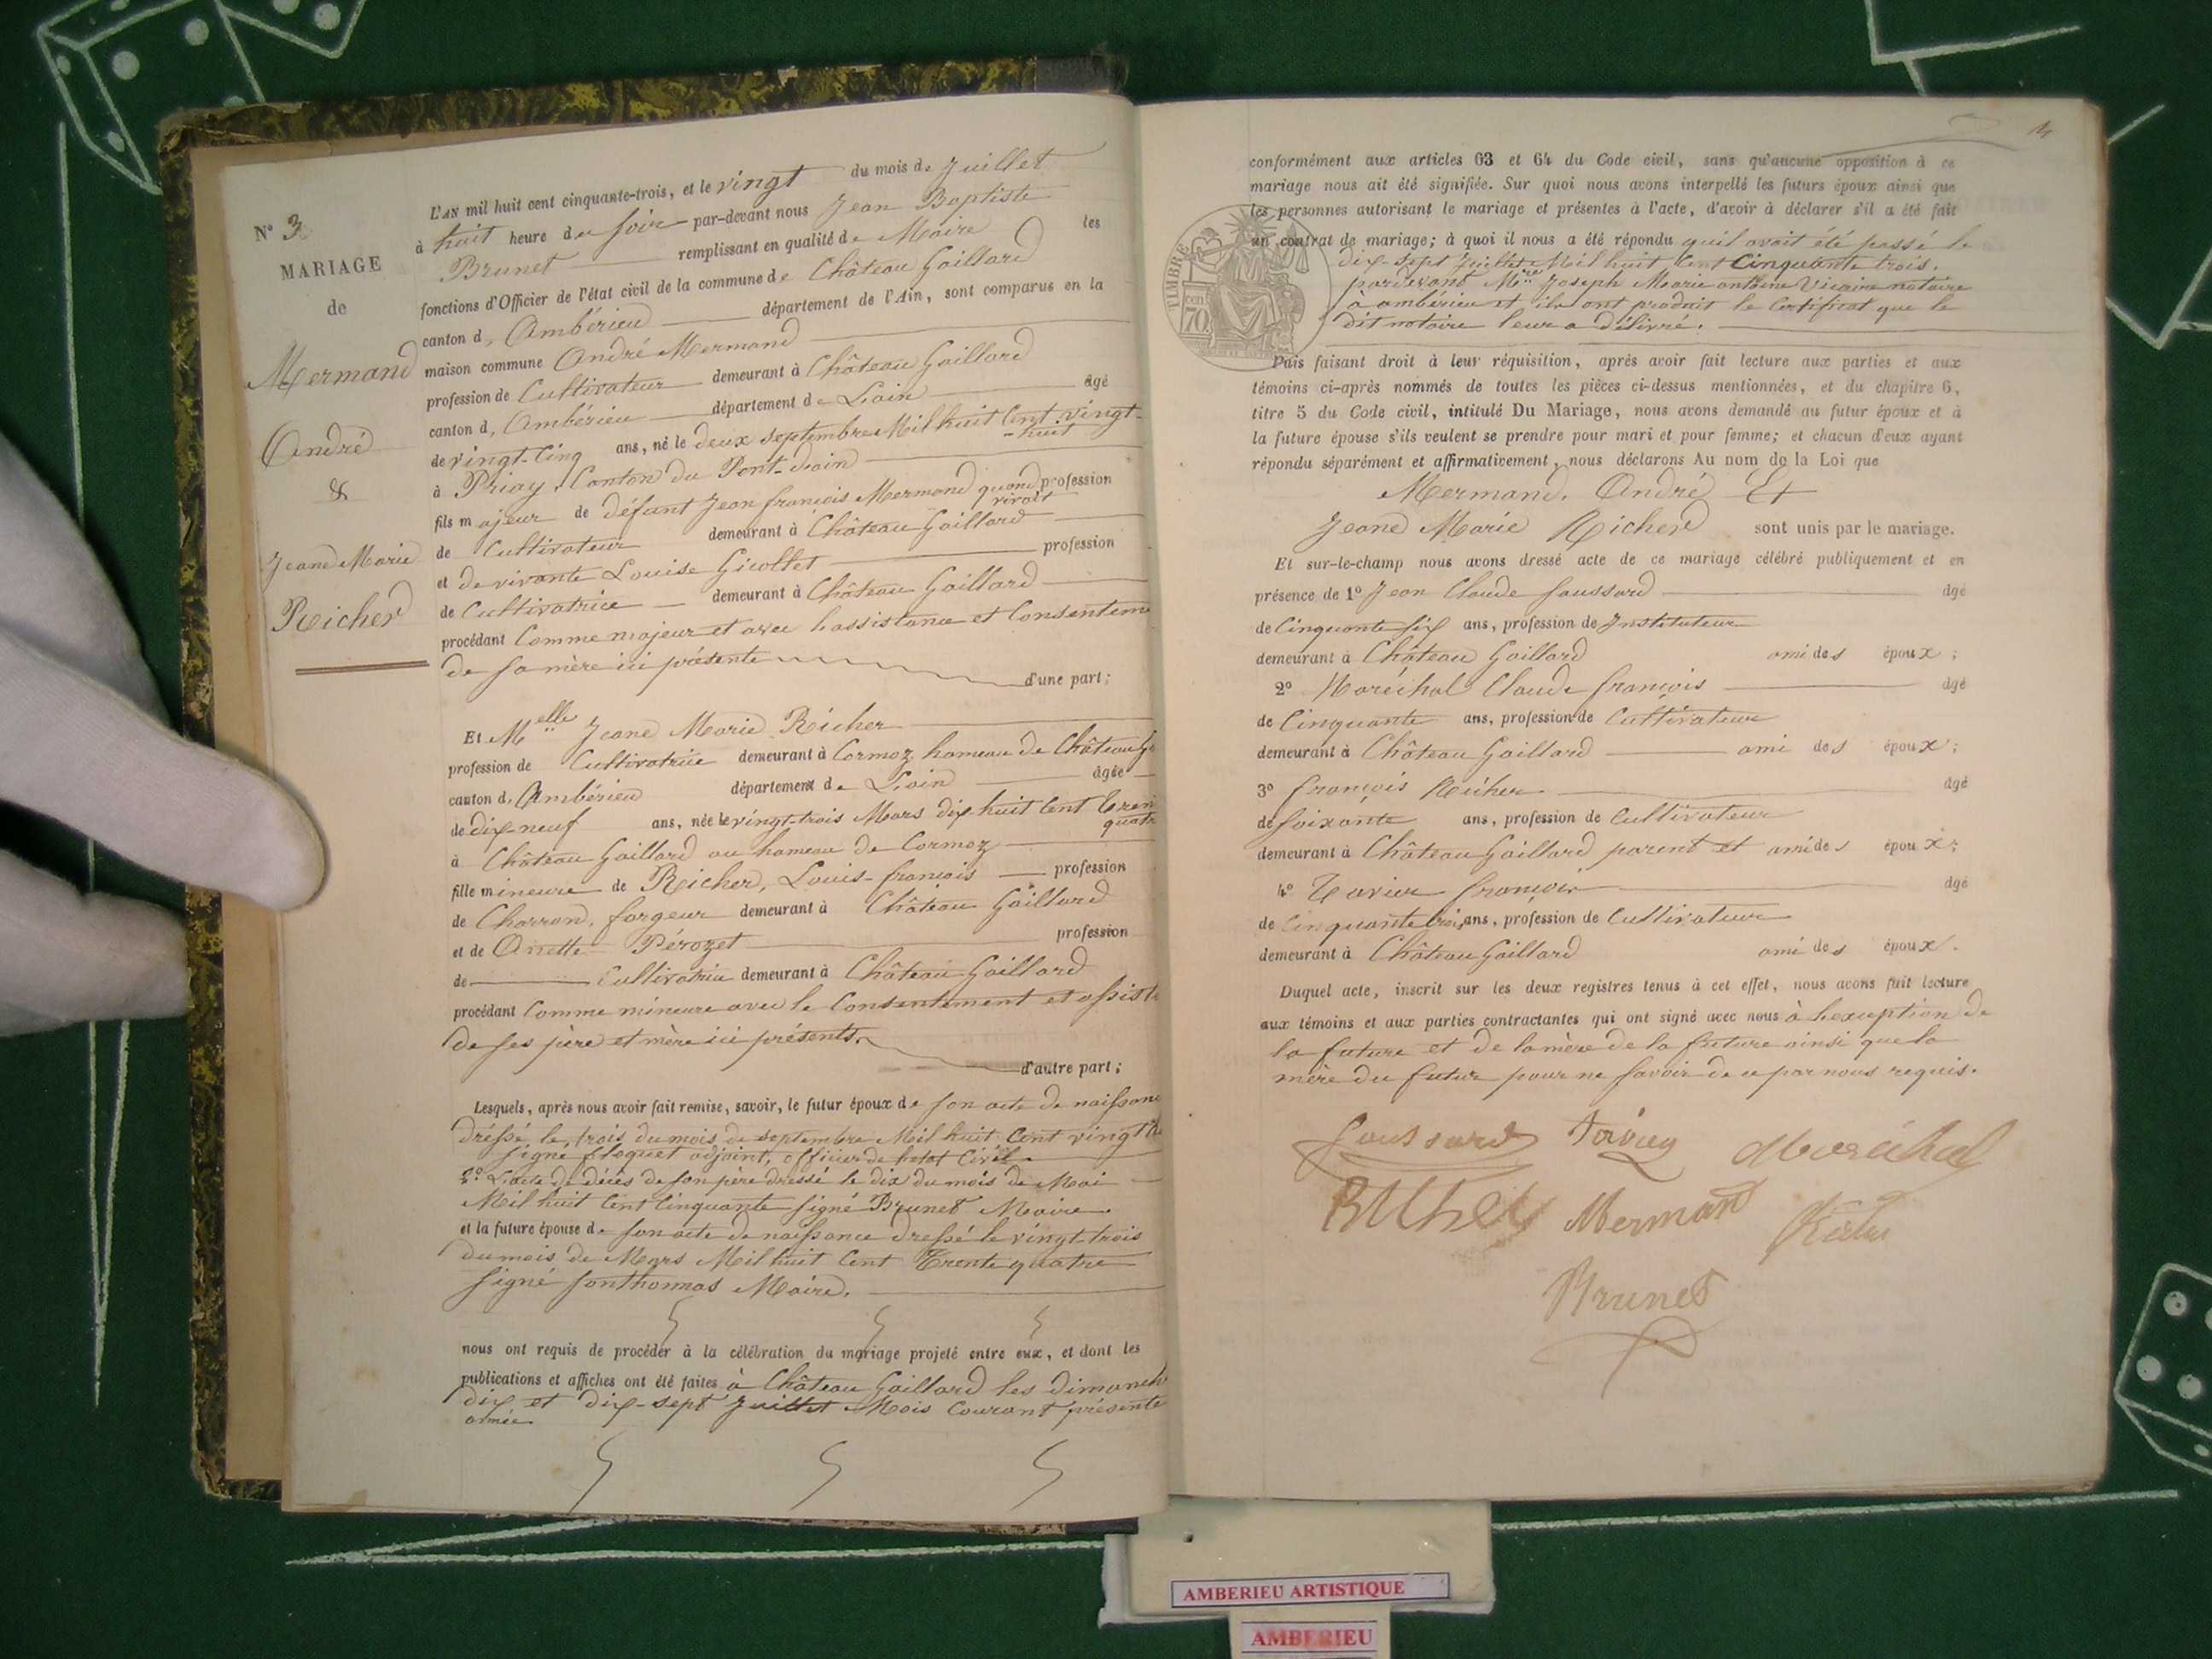 N° 3
MARIAGE
de
Mermand
André
&
Jeane Marie
Richerd
L'AN mil huit cent cinquante-trois, et le vingt du mois de Juillet
à huit heure du soir par-devant nous Jean Baptiste
Brunet remplissant en qualité de Maire les
fonctions d'Officier de l'état civil de la commune de Château Gaillard
canton d'Ambérieu département de l'Ain, sont comparus en la
maison commune André Mermand
profession de Cultivateur demeurant à Château Gaillard
canton d'Ambérieu département de L'ain âgé
de vingt-Cinq ans, né le deux septembre Mil huit Cent vingt-
huit
à Priay, Canton du Pont-d'ain
fils majeur de défunt Jean françois Mermand quand vivait profession
de Cultivateur demeurant à Château Gaillard
et de vivante Louise Gicollet profession
de Cultivatrice demeurant à Château Gaillard
procédant Comme majeur et avec l'assistance et Consenteme
de sa mère ici présente
d'une part;
Et Melle Jeane Marie Richer
profession de Cultivatrice demeurant à Cormoz, hameau de Château G
canton d'Ambérieu département de L'ain âgée
de dix-neuf ans, née le vingt-trois Mars dix-huit Cent Tren
quatr
à Château Gaillard au hameau de Cormoz
fille mineure de Richerd, Louis-françois profession
de Charrond, forgeur demeurant à Château Gaillard
et de Anette Pérozet profession
de Cultivatrice demeurant à Château Gaillard
procédant Comme mineure avec le Consentement et assist
de ses père et mère ici présents.
d'autre part;
Lesquels, après nous avoir fait remise, savoir, le futur époux de son acte de naissanc
dréssé, le, trois du mois de septembre Mil huit Cent vingt h
signé floquet adjoint, officier de l'etat Civil.
2° L'acte de décès de son père dressé le dix du mois de Mai
Mil huit Cent Cinquante signé Brunet Maire.
et la future épouse de son acte de naissance dressé le vingt-trois
du mois de Mars Mil huit Cent Trente quatre
signé fonthonnas Maire.
nous ont requis de procéder à la célébration du mariage projeté entre eux, et dont les
publications et affiches ont été faites à Château Gaillard les dimanch
dix et dix-sept Juillet Mois Courant présente
année.
conformément aux articles 63 et 64 du Code civil, sans qu'aucune opposition à ce
mariage nous ait été signifiée. Sur quoi nous avons interpellé les futurs époux ainsi que
les personnes autorisant le mariage et présentes à l'acte, d'avoir à déclarer s'il a été fait
un contrat de mariage; à quoi il nous a été répondu quil avait été passé le
dix-sept Juillet Mil huit Cent Cinquante trois.
pardevant Mtre Joseph Marie antoine Vicaire notaire
à ambérieu et ils ont produit le Certificat que le
dit notaire leur a délivré.
TIMBRE
70
Puis faisant droit à leur réquisition, après avoir fait lecture aux parties et aux
témoins ci-après nommés de toutes les pièces ci-dessus mentionnées, et du chapitre 6,
titre 5 du Code civil, intitulé Du Mariage, nous avons demandé au futur époux et à
la future épouse s'ils veulent se prendre pour mari et pour femme; et chacun d'eux ayant
répondu séparément et affirmativement, nous déclarons Au nom de la Loi que
Mermand. André Et
Jeane Marie Richerd sont unis par le mariage.
Et sur-le-champ nous avons dressé acte de ce mariage célébré publiquement et en
présence de 1° Jean Claude foussard âgé
de Cinquante six ans, profession de Instituteur
demeurant à Château Gaillard ami des époux;
2° Maréchal Claude françois âgé
de Cinquante ans, profession de Cultivateur
demeurant à Château Gaillard ami des époux;
3° françois Richer. âgé
de soixante ans, profession de Cultivateur
demeurant à Château Gaillard parent et ami des époux;
4° Tavier françois âgé
de Cinquante trois ans, profession de Cultivateur
demeurant à Château Gaillard ami des époux.
Duquel acte, inscrit sur les deux registres tenus à cet effet, nous avons fait lecture
aux témoins et aux parties contractantes qui ont signé avec nous à l'exception de
la future et de la mère de la future ainsi que la
mère du futur pour ne savoir de ce par nous requis.
foussard Maréchal
Mermand
Brunet
AMBERIEU ARTISTIQUE
AMBERIEU